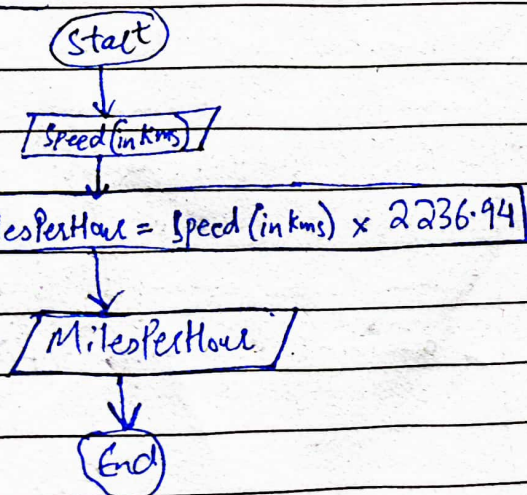 Start
Speed (in kms)
lesPerHour = Speed (in kms) × 2236.94
MilesPerHour
End